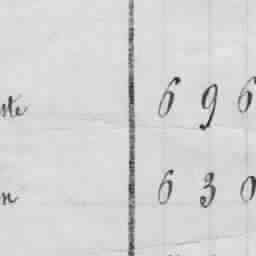 ste 6 9 6
n 6 3 0